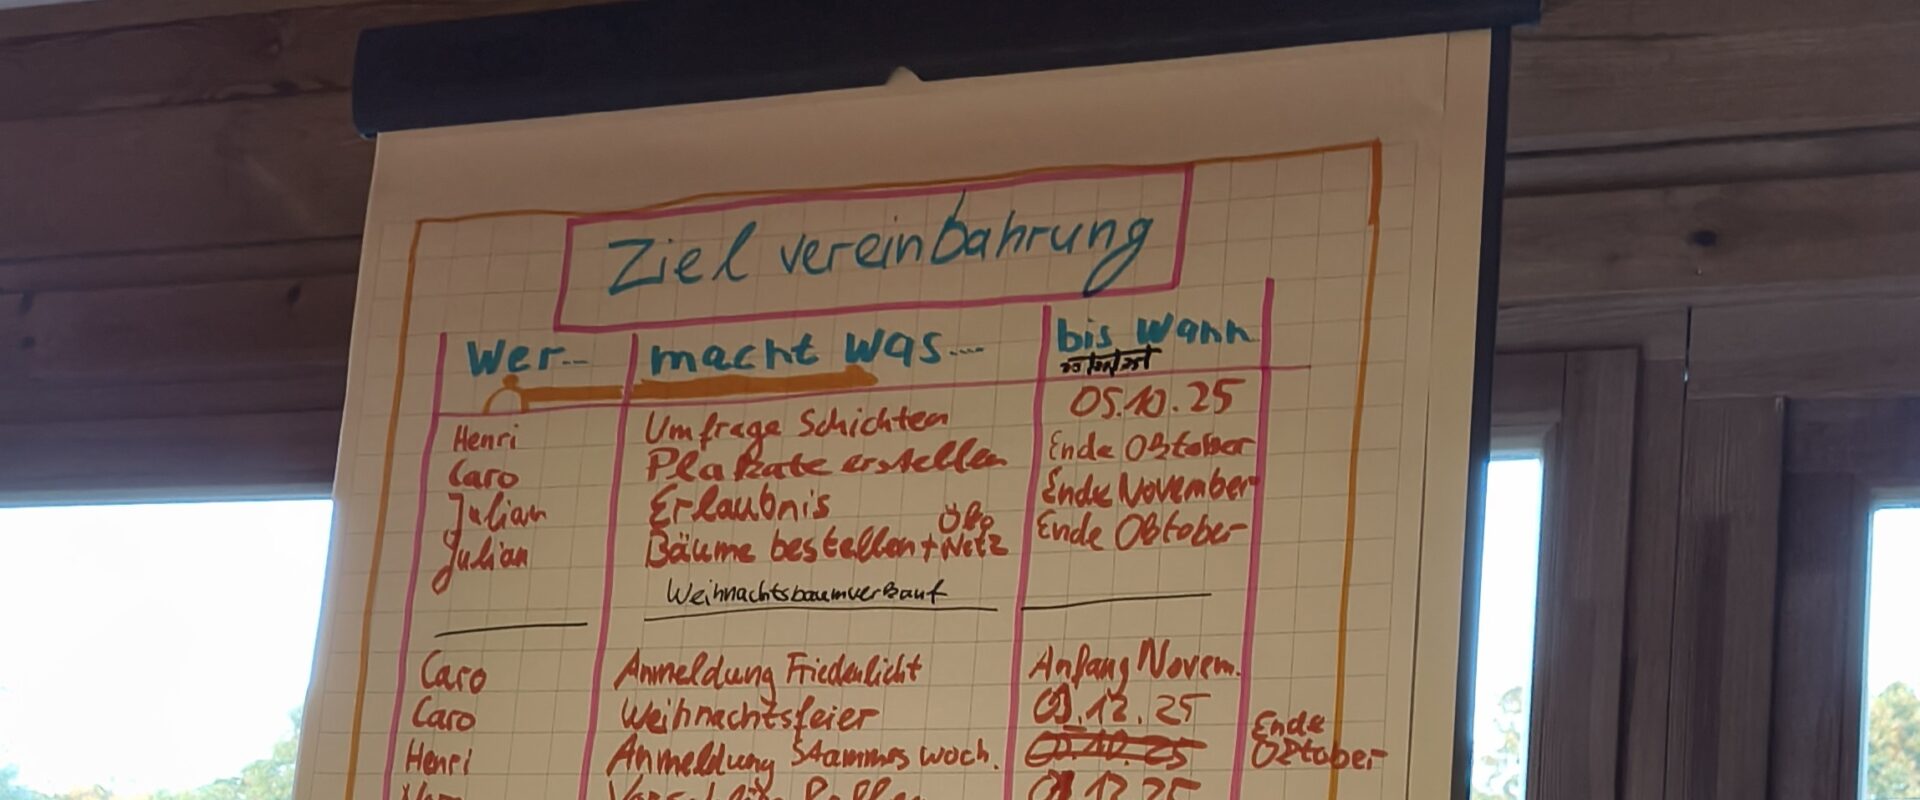 Ziel vereinbahrung
Wer... macht was.... bis wann
Henri Umfrage Schichten 05.10.25
Caro Plakate erstellen Ende Oktober
Julian Erlaubnis Ende November
Julian Bäume bestellen + Öko Netz Ende Oktober
Weihnachtsbaumverkauf
Caro Anmeldung Friedenlicht Anfang Novem.
Caro Weihnachtsfeier 12.25
Henri Anmeldung Stammes woch. Ende Oktober
12.25